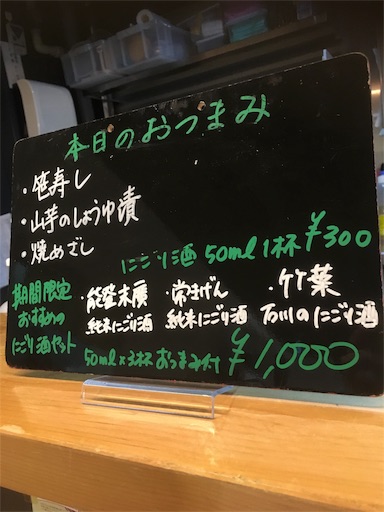 本日のおつまみ
・笹寿し
・山芋のしょうゆ漬
・焼めざし
にごり酒 50ml 1杯 ¥300
期間限定
おすすめの
にごり酒セット
・能登末廣
純米にごり酒
・常きげん
純米にごり酒
・竹葉
石川のにごり酒
50ml×3杯 おつまみ付 ¥1,000